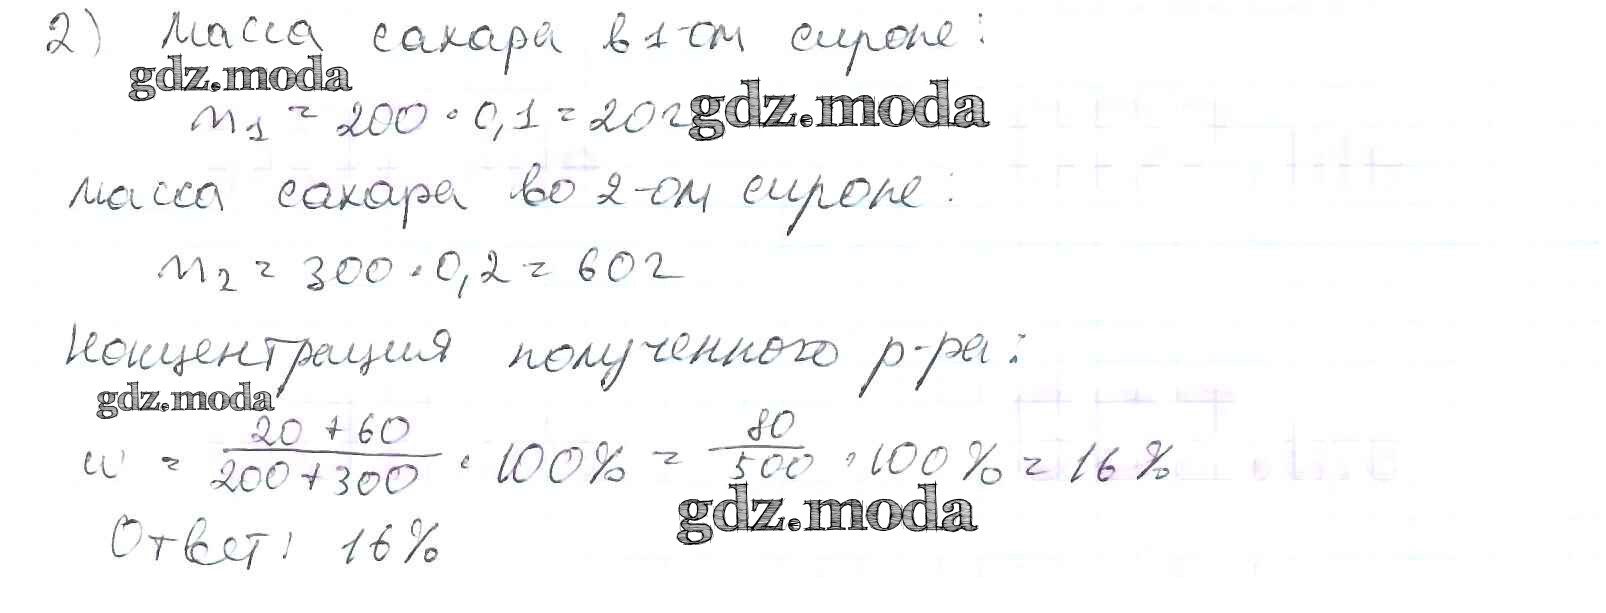 2) Масса сахара в 1-ом сиропе:
gdz.moda
m₁ = 200 · 0,1 = 20г
gdz.moda
масса сахара во 2-ом сиропе:
m₂ = 300 · 0,2 = 60г
Концентрация полученного р-ра:
gdz.moda
w = (20 + 60)/(200 + 300) · 100% = 80/500 · 100% = 16%
gdz.moda
Ответ: 16%